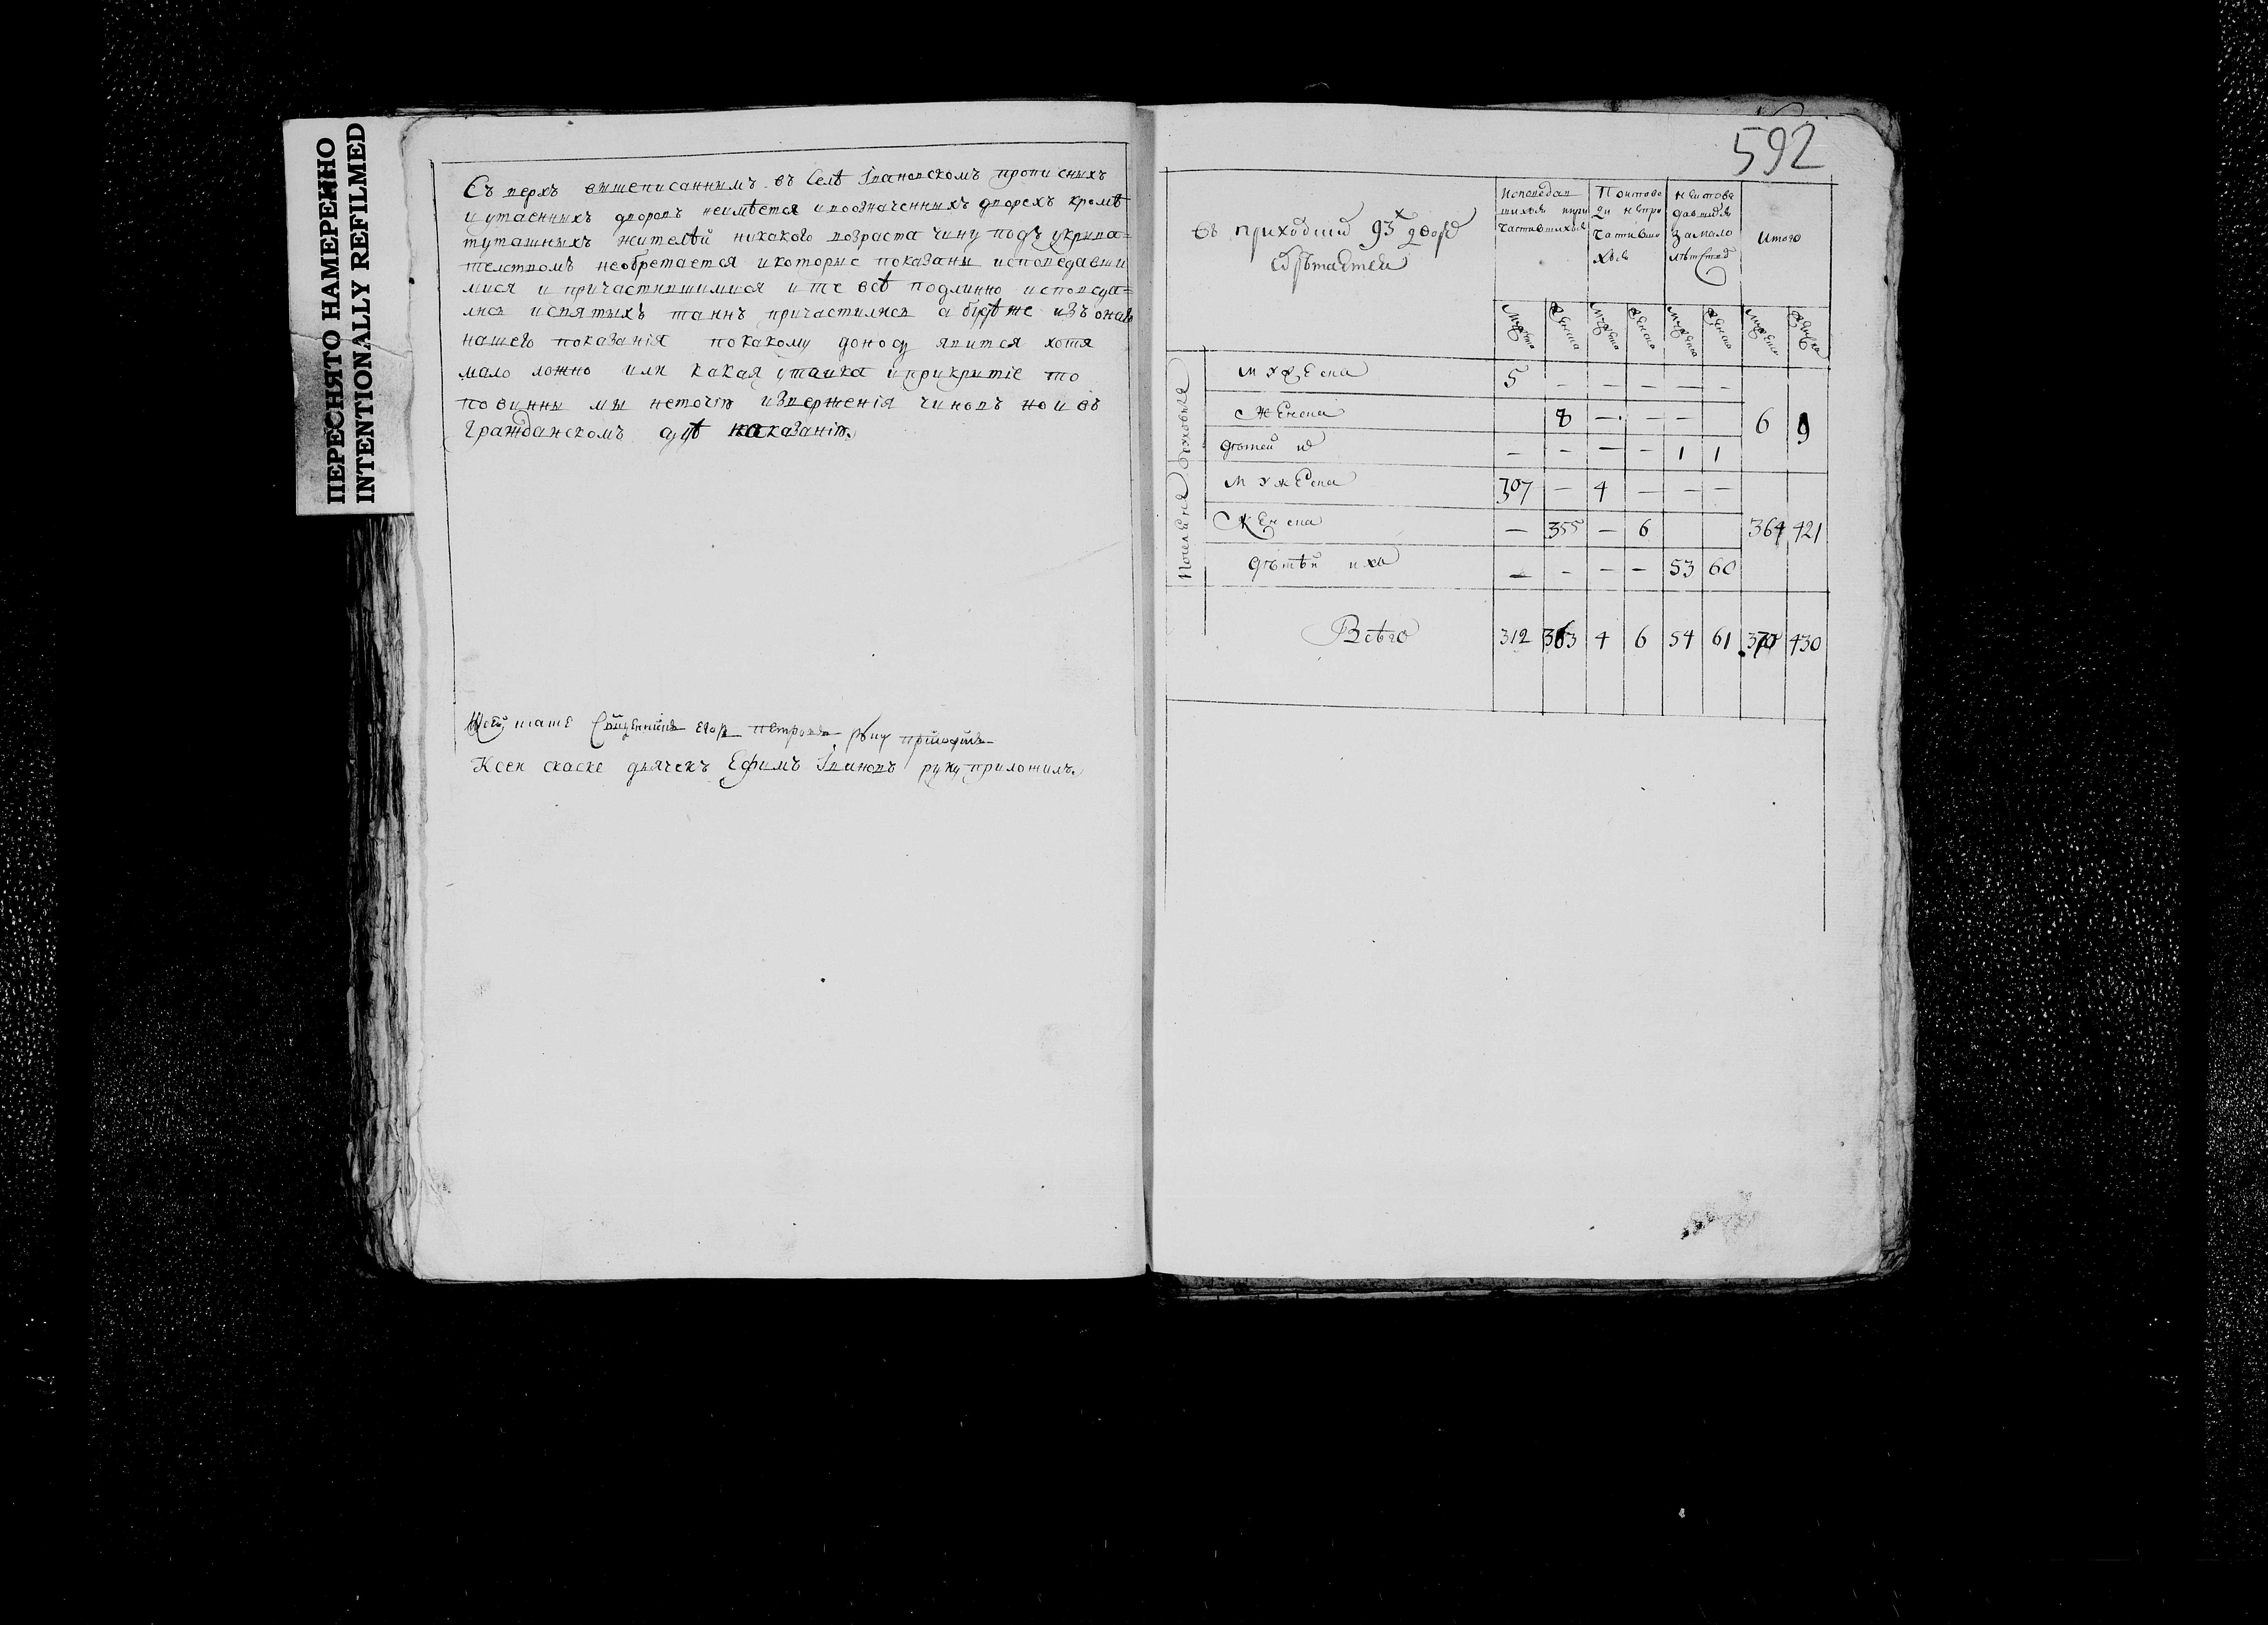 ПЕРЕСНЯТО НАМЕРЕННО
INTENTIONALLY REFILMED
Съ верхъ вышеписаннымъ въ Селѣ Iвановскомъ прописныхъ
и утаенныхъ дворовъ неимѣется ивоозначенныхъ дворехъ кромѣ
туташныхъ жителѣй никакого возраста чину подъ укрыва=
телствомъ необретается икоторые показаны исповедавши
мися и причастившимися и те всѣ подлинно исповеда=
лись исвятыхъ таинъ причастились а будѣ же изъ онаго
нашего показанiя покакому доносу явится хотя
мало ложно или какая утайка иприкрытiе то
повинны мы неточiю извержениiя чиновъ но и въ
Гражданскомъ судѣ наказанiю.
Егор Петровъ руку приложилъ
Ксеи скаске дьячекъ Ефимъ Iвановъ руку приложилъ.
592
въ приходѣ 93х дворе
обрѣтается
Исповедав
шихся ипри
частившихся
По исповe
ди непри
частивши
хся
неиспове
давшихся
за мало
лѣтством
Итого
Мужеска Женска Мужеска Женска Мужеска Женска Мужеска Женска
Духовныя
Мужеска 5 – – – – –
Женска 8 – – – 6 9
дѣтей их – – – – 1 1
Мужеска 307 – 4 – – –
Женска – 355 – 6 364 421
дѣтѣй ихъ – – – – 53 60
Всѣго 312 363 4 6 54 61 370 430